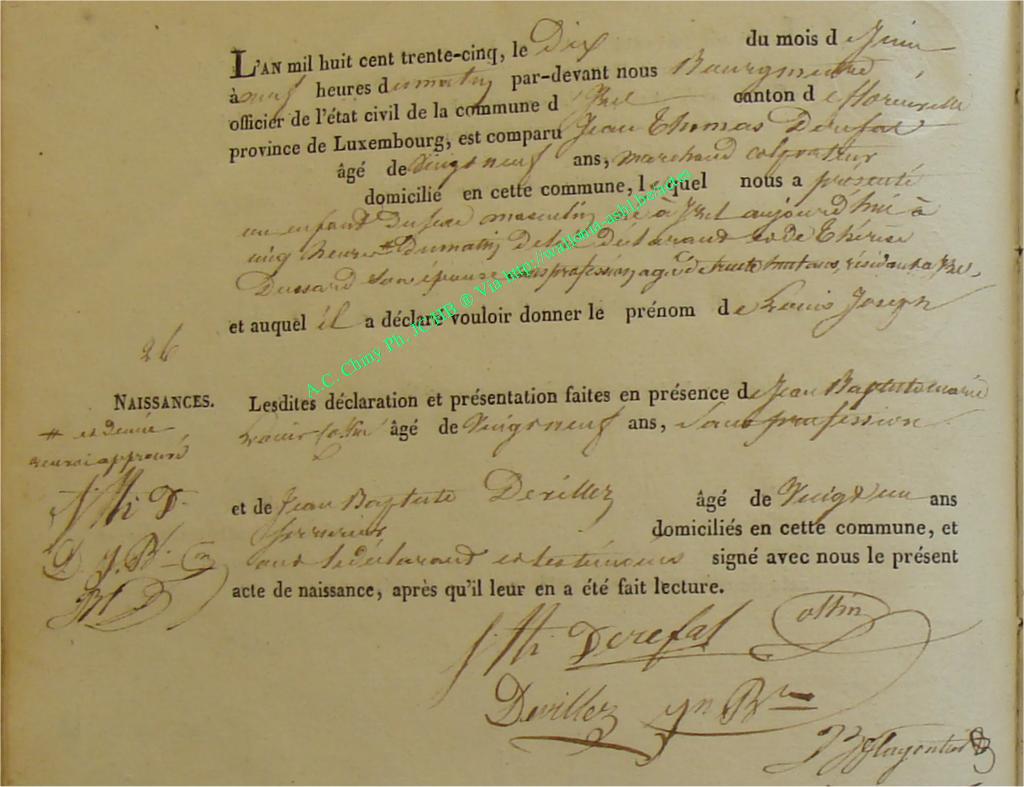 L'AN mil huit cent trente-cinq, le Dix du mois de Juin
à neuf heures du matin par-devant nous Bourgmestre
officier de l'état civil de la commune d'Izel canton de florenville
province de Luxembourg, est comparu Jean Thomas Derefat
âgé de Vingt neuf ans, marchand colporteur
domicilié en cette commune, lequel nous a présenté
un enfant du sexe masculin né à Izel aujourd'hui à
cinq heures # Du matin De lui Déclarant et de Thérèse
Dussard son épouse sans profession, agée de trente huit ans, résidant a Izel,
et auquel il a déclaré vouloir donner le prénom de Louis Joseph
26
NAISSANCES.
# et demie
renvoi approuvé
J. Th. D.
D y. Bt. Con
Bt D
Lesdites déclaration et présentation faites en présence de Jean Baptiste marie
Louis Collin âgé de Vingt neuf ans, Sans profession
et de Jean Baptiste Devillez âgé de Vingt un ans
Serrurier domiciliés en cette commune, et
ont le déclarant et les témoins signé avec nous le présent
acte de naissance, après qu'il leur en a été fait lecture.
J. Th. Derefat Collin
Devillez yn Bre
A.C. Chiny Ph. JCHB ® Via http://wallonia-asbl.be/actes